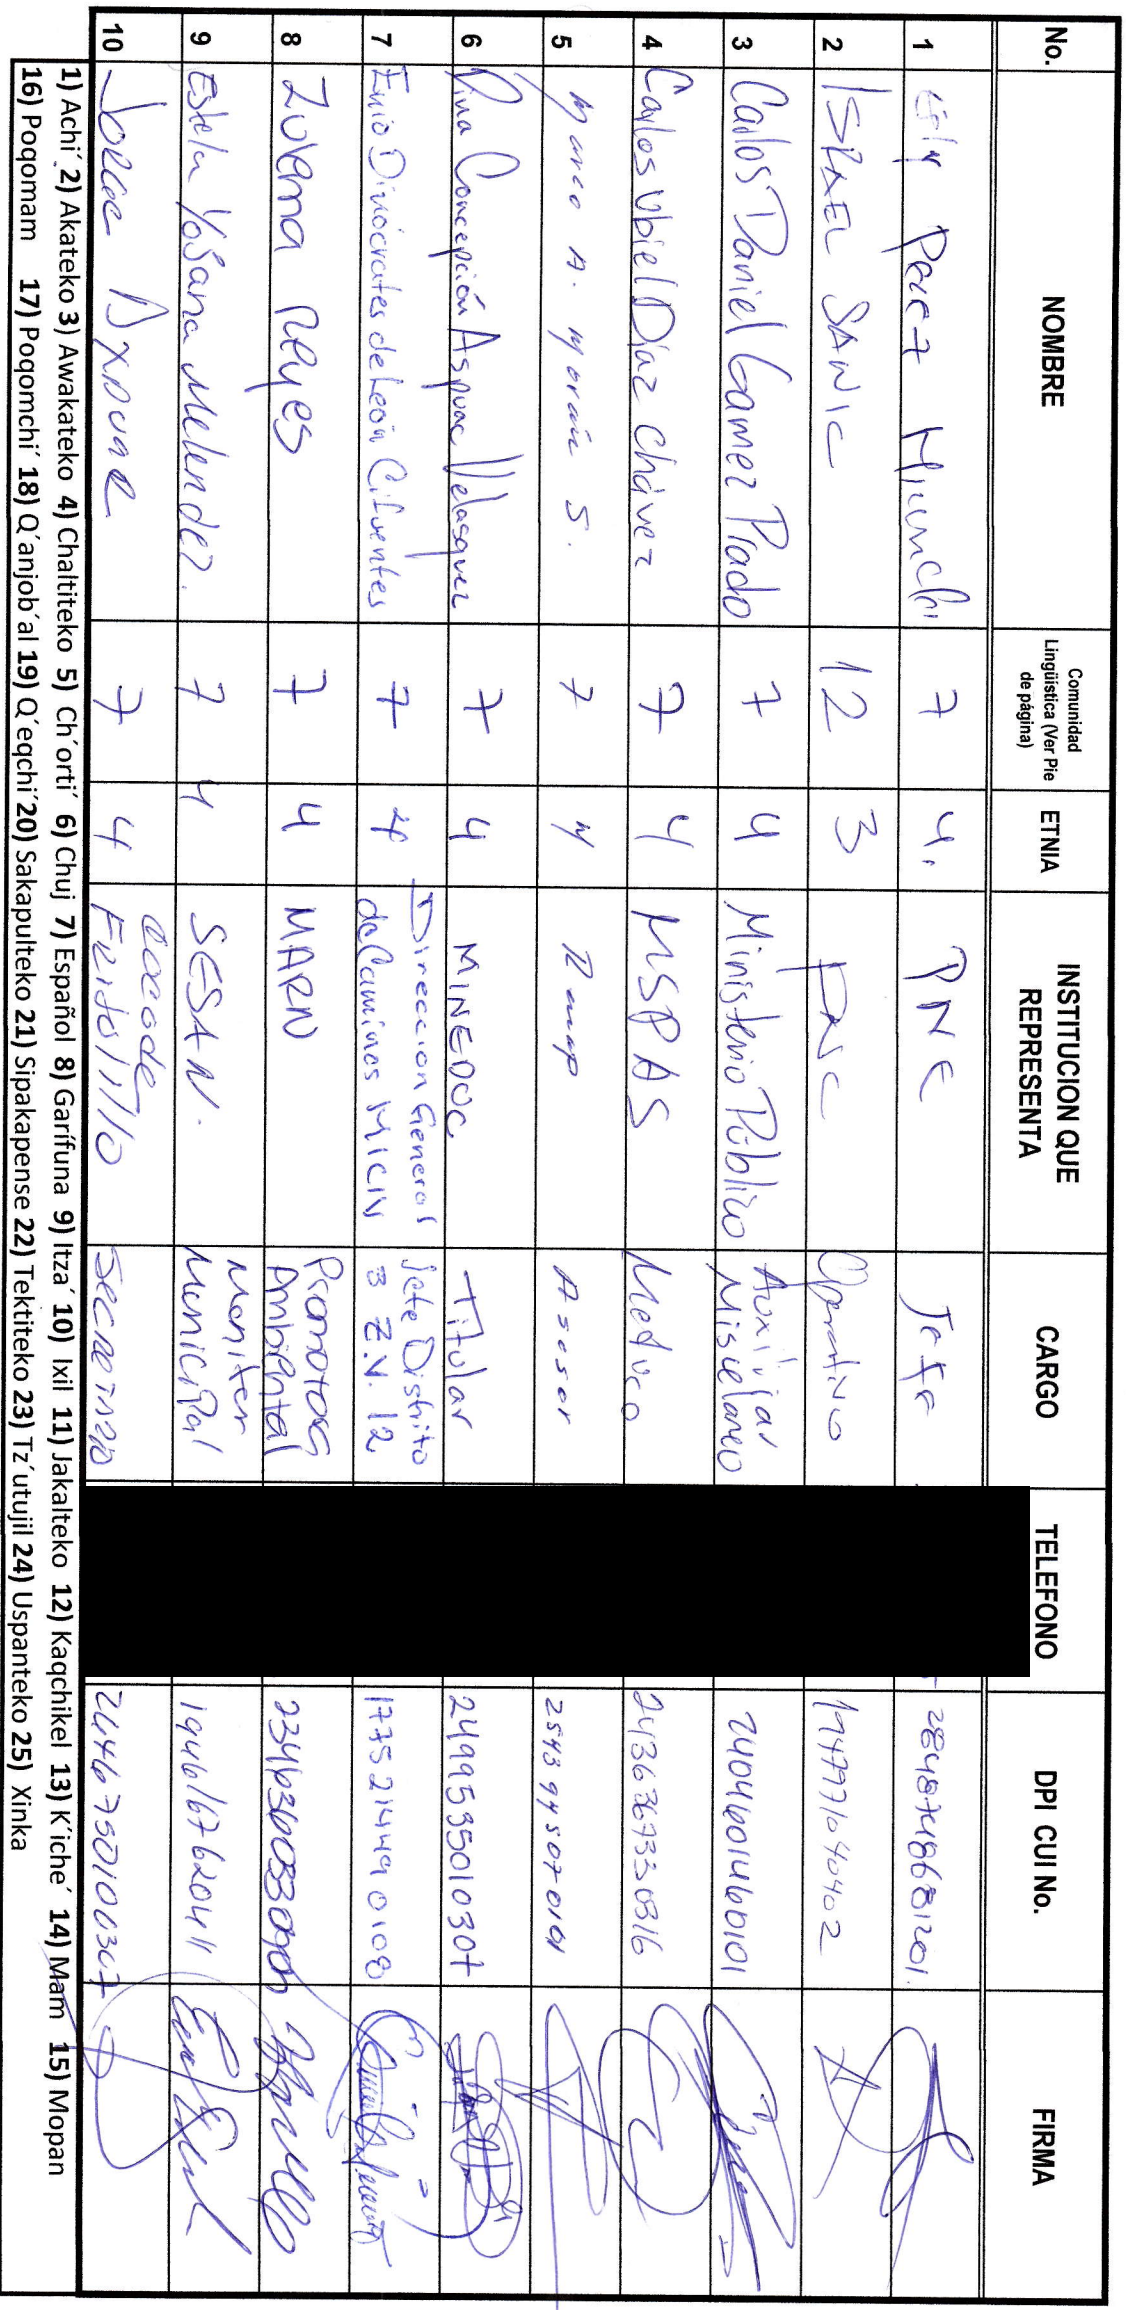 No. NOMBRE Comunidad Lingüistica (Ver Pie de página) ETNIA INSTITUCION QUE REPRESENTA CARGO TELEFONO DPI CUI No. FIRMA
1 Perez 7 4. PNC Jefe
2 ISRAEL SANIC 12 3 PNC Operativo
3 Carlos Daniel Gamez Prado 7 4 Ministerio Público Auxiliar Misuelaneo 2404601460101
4 Carlos Ubiel Díaz Chávez 7 4 MSPAS Medico 2436367330316
5 Marco A. Morán S. 7 4 Asesor 2543945070101
6 Dina Concepción Aspuac Velasquez 7 4 MINEDUC Titular 2499535010307
7 Enio Dinócrates de León Cifuentes 7 4 Direccion General de Caminos MICIV Jefe Distrito 3 Z.V. 12 1775214490108
8 Zulema Reyes 7 4 MARN Promotora Ambiental
9 Estela Yosana Melendez. 7 4 SESAN. Moniter Municipal 1946167620411
10 Jorge 7 4 cocode 2446750100307
1) Achi´ 2) Akateko 3) Awakateko 4) Chaltiteko 5) Ch´orti´ 6) Chuj 7) Español 8) Garífuna 9) Itza´ 10) Ixil 11) Jakalteko 12) Kaqchikel 13) K´iche´ 14) Mam 15) Mopan
16) Poqomam 17) Poqomchi´ 18) Q´anjob´al 19) Q´eqchi´ 20) Sakapulteko 21) Sipakapense 22) Tektiteko 23) Tz´utujil 24) Uspanteko 25) Xinka